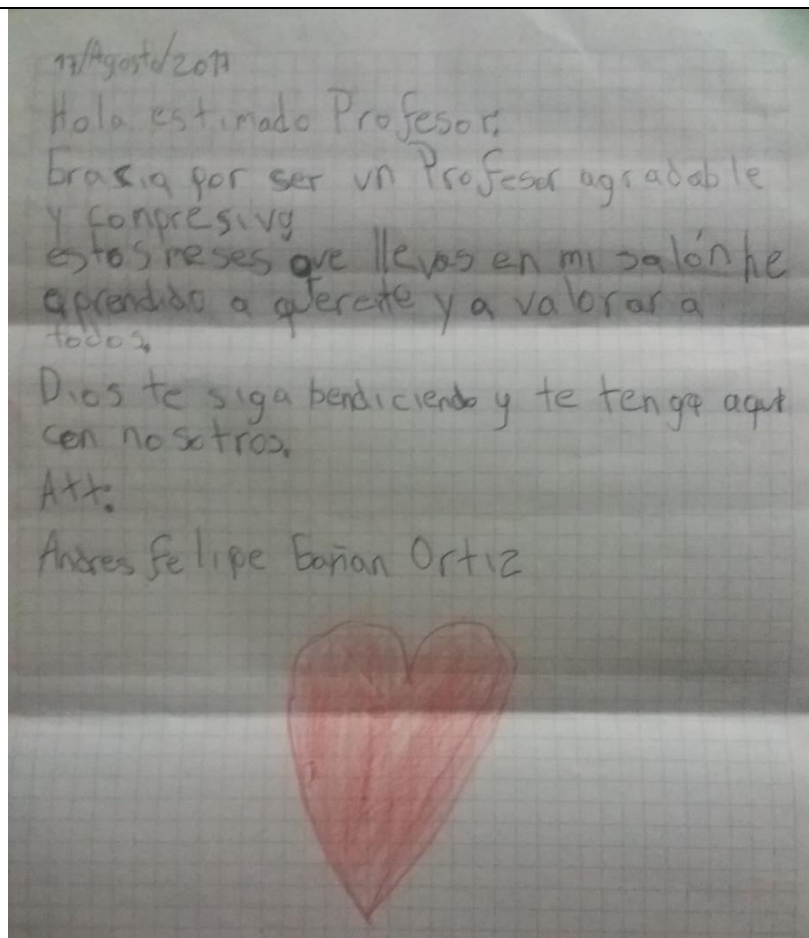 17/Agosto/2017
Hola estimado Profesor:
Grasia por ser un Profesor agradable
y conpresivo
estos meses que llevas en mi salón he
aprendido a quererte y a valorar a
todos.
Dios te siga bendiciendo y te tenga aqui
con nosotros.
Att:
Andres felipe Gañan Ortiz